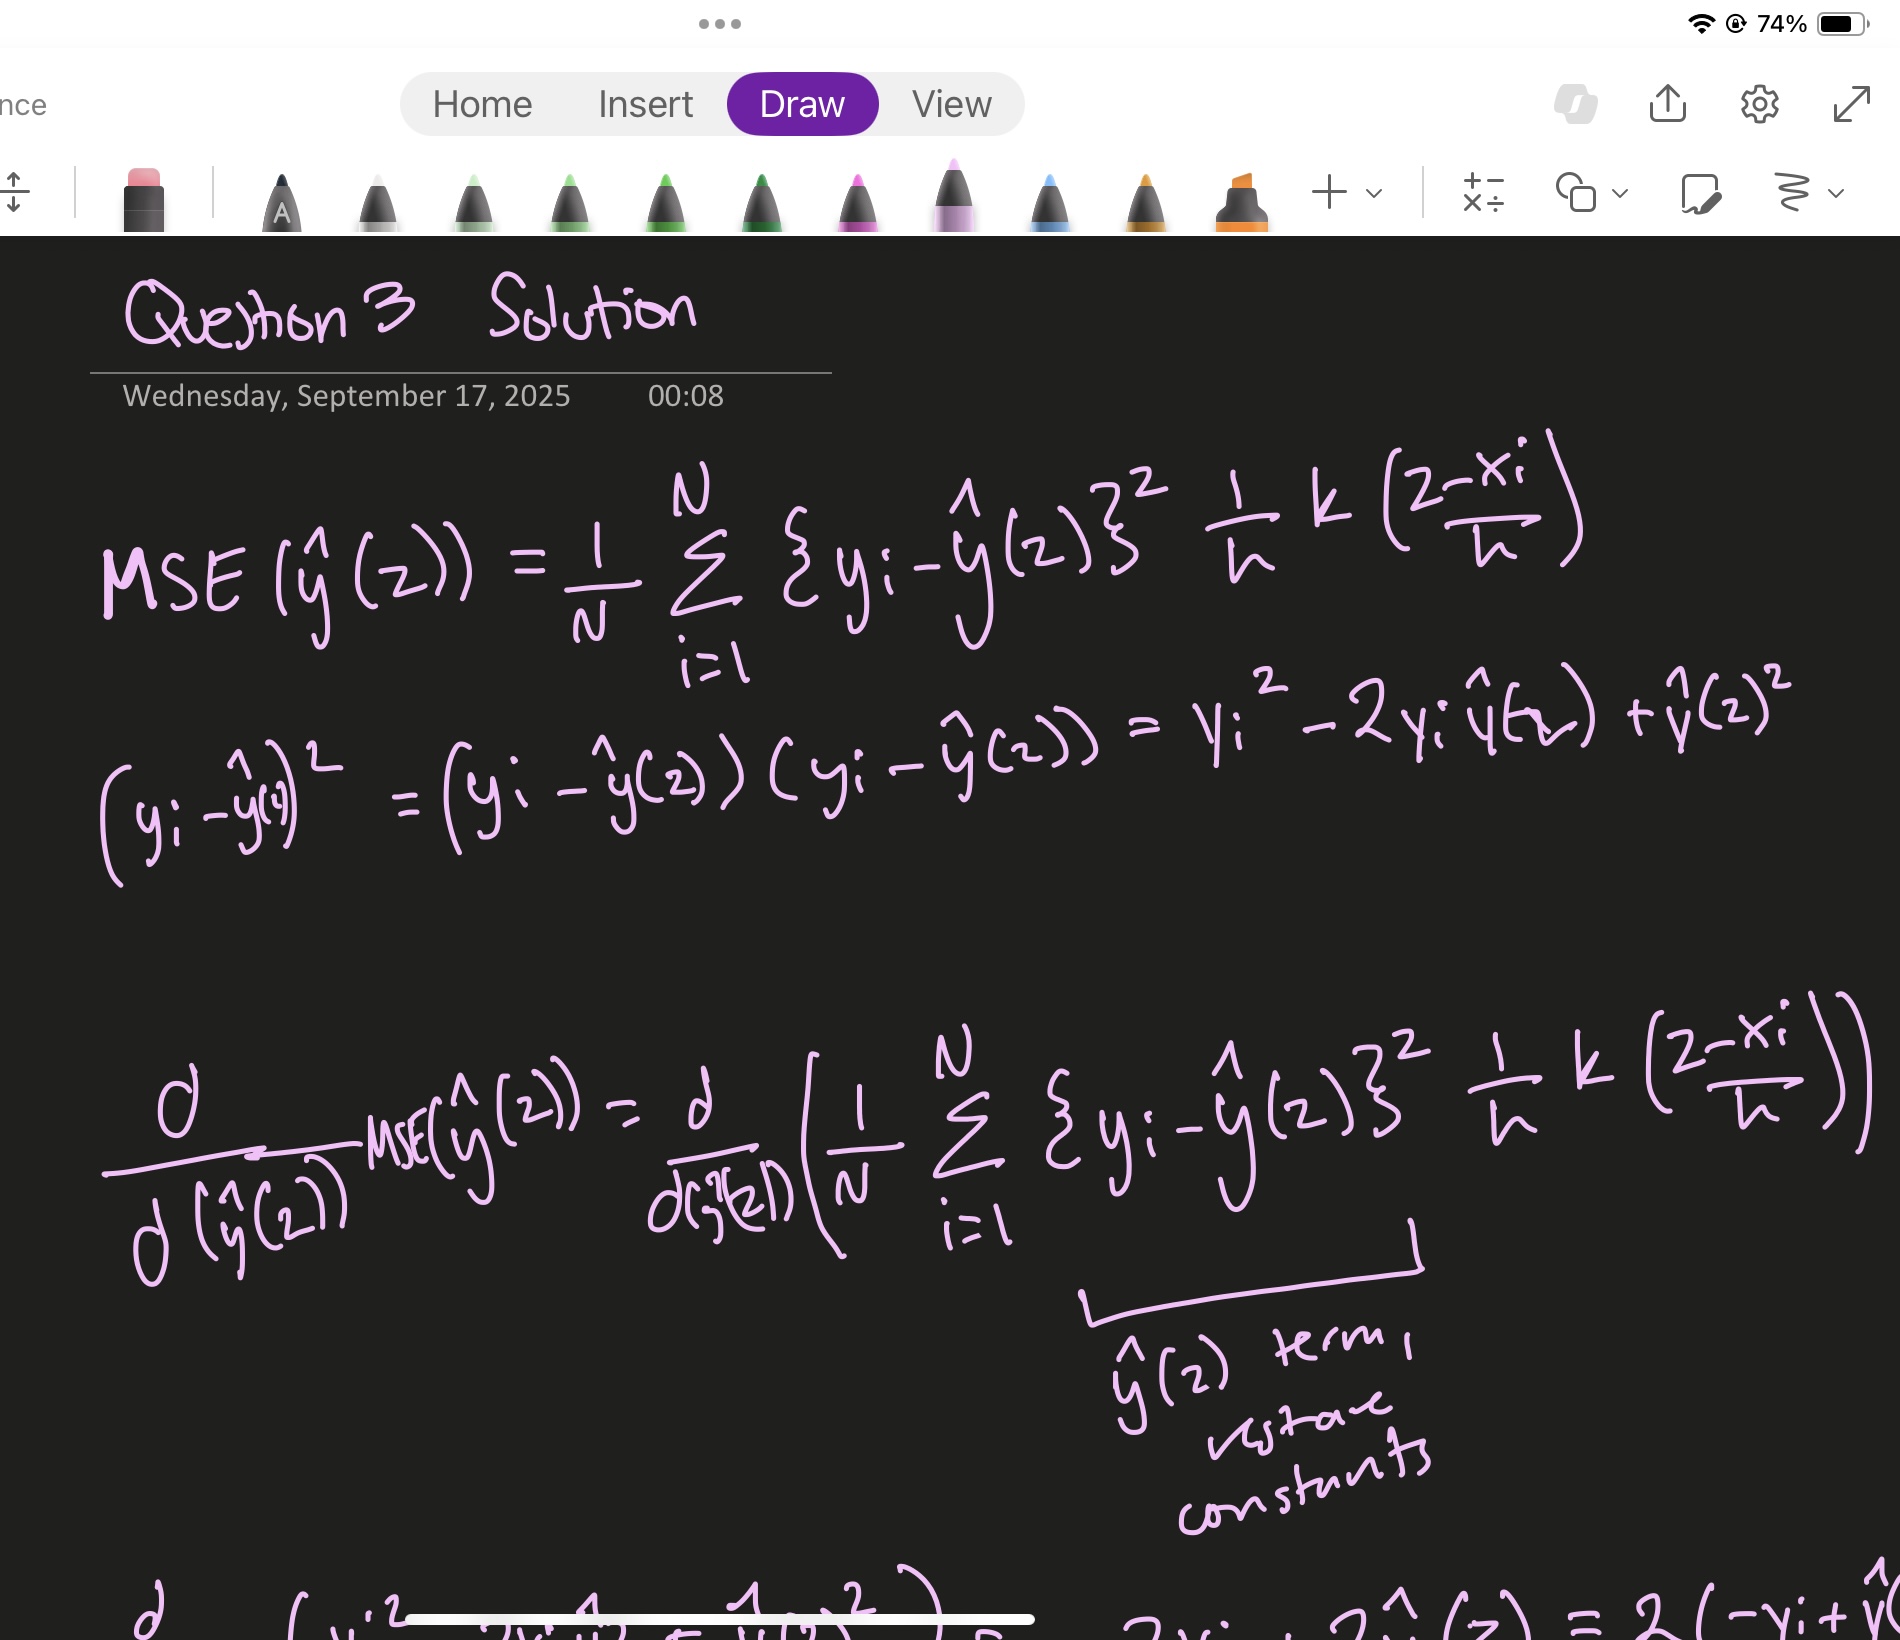 74%
nce
Home Insert Draw View
A
Question 3 Solution
Wednesday, September 17, 2025 00:08
MSE(ŷ(z)) = 1/N Σ_{i=1}^{N} {yi - ŷ(z)}² 1/h k((z-xi)/h)
(yi - ŷ(z))² = (yi - ŷ(z))(yi - ŷ(z)) = yi² - 2yi ŷ(z) + ŷ(z)²
d/d(ŷ(z)) MSE(ŷ(z)) = d/d(ŷ(z)) (1/N Σ_{i=1}^{N} {yi - ŷ(z)}² 1/h k((z-xi)/h))
ŷ(z) term,
rest are
constants
d = 2(-yi + ŷ(